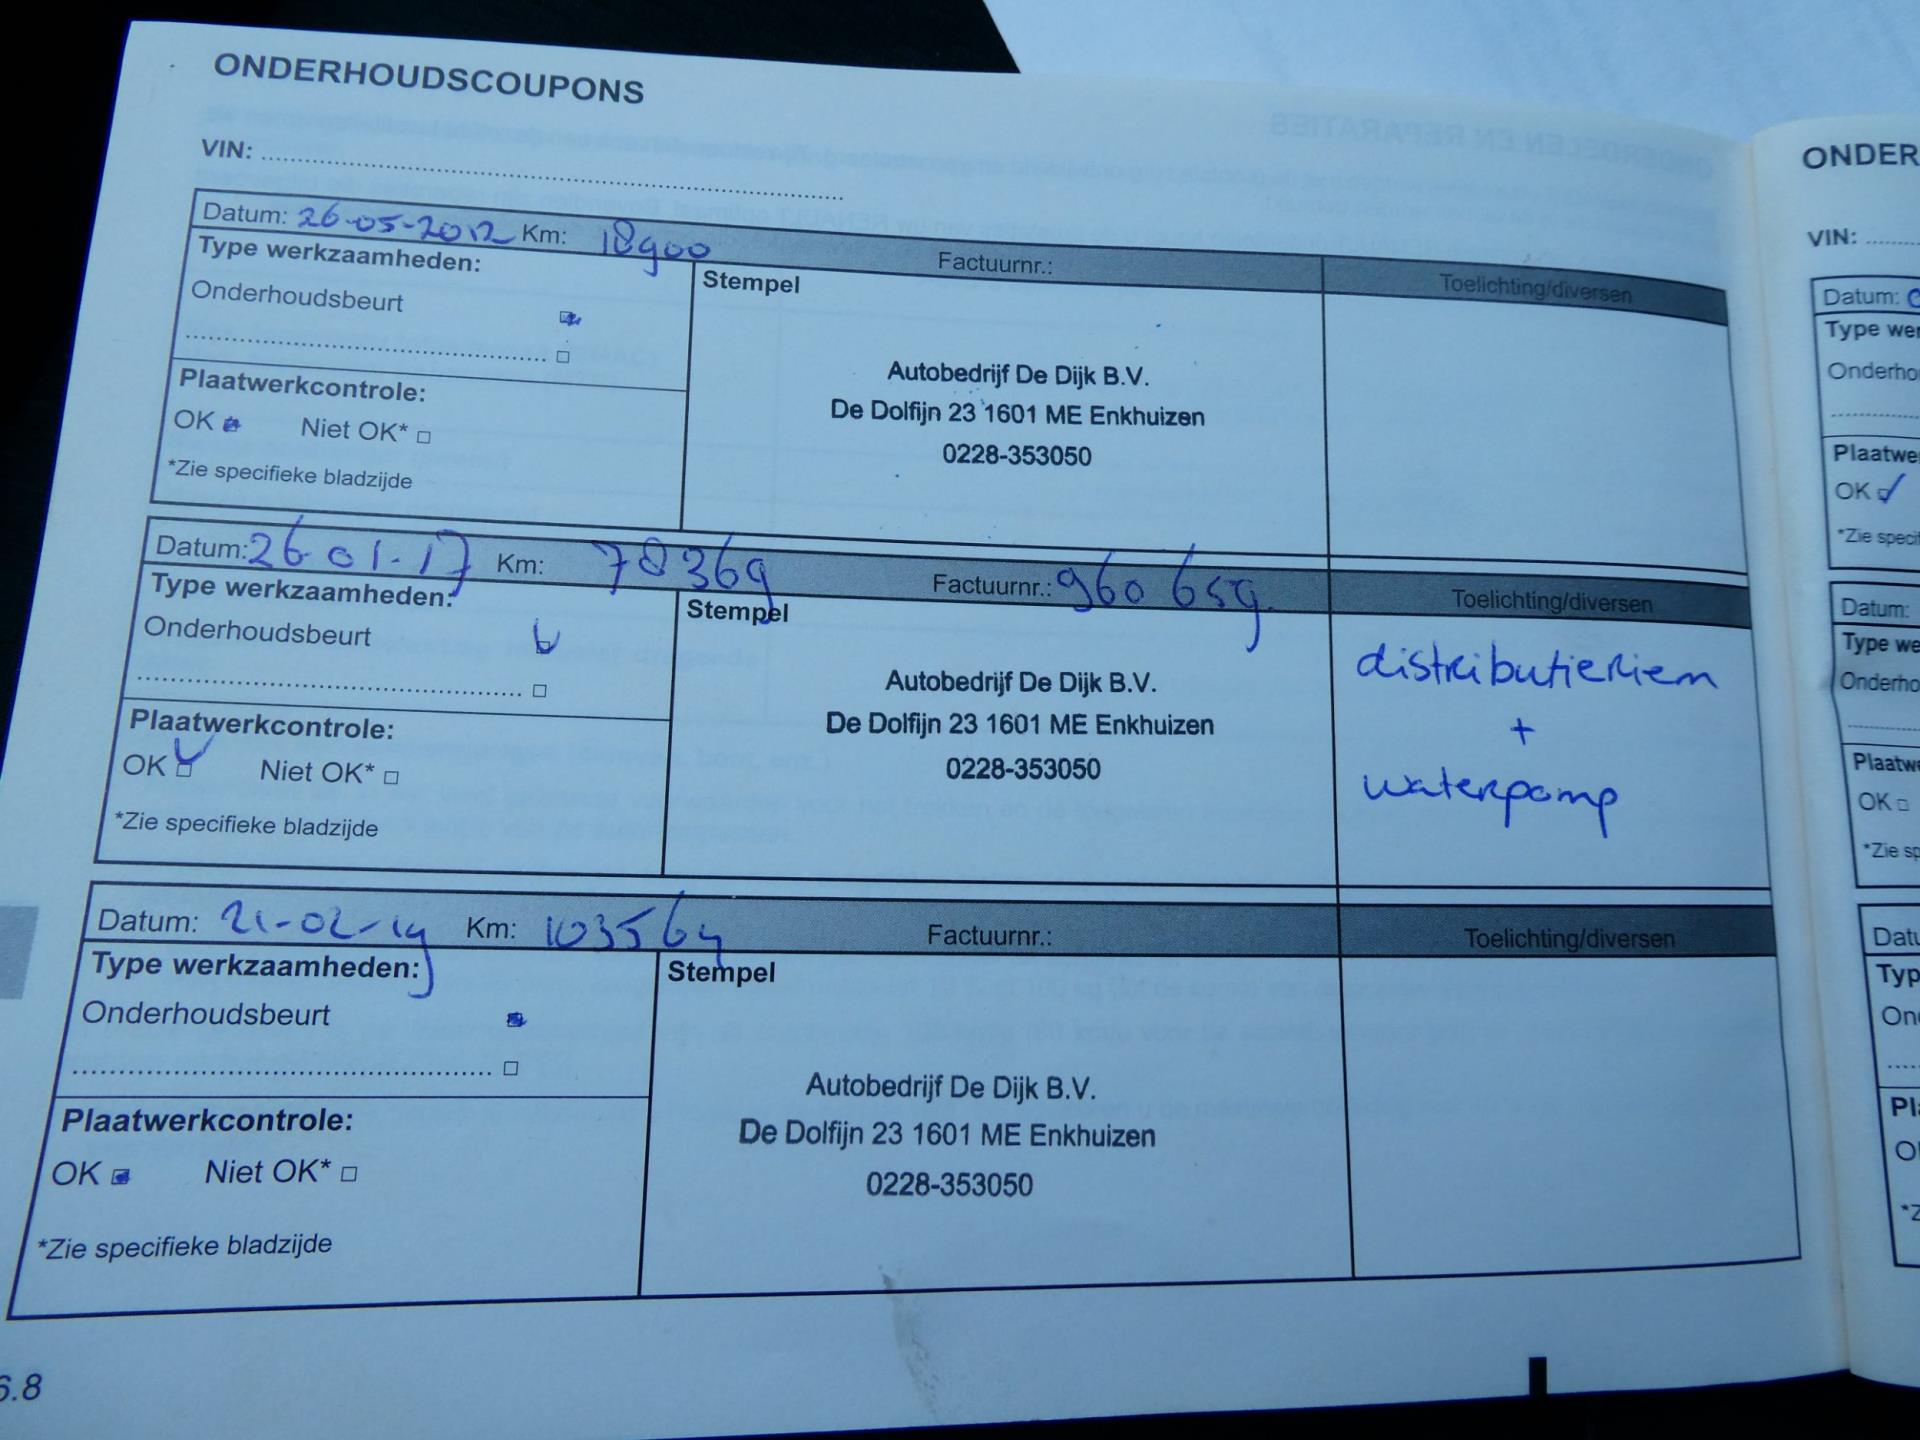 ONDERHOUDSCOUPONS
VIN:
Datum: 26-05-2012 Km: 18900 Factuurnr.: Toelichting/diversen
Type werkzaamheden:
Stempel
Onderhoudsbeurt
Plaatwerkcontrole:
OK Niet OK*
*Zie specifieke bladzijde
Autobedrijf De Dijk B.V.
De Dolfijn 23 1601 ME Enkhuizen
0228-353050
Datum: 26-01-17 Km: 78369 Factuurnr.: 960 659. Toelichting/diversen
Type werkzaamheden:
Stempel
Onderhoudsbeurt
Plaatwerkcontrole:
OK Niet OK*
*Zie specifieke bladzijde
Autobedrijf De Dijk B.V.
De Dolfijn 23 1601 ME Enkhuizen
0228-353050
distributieriem
+
waterpomp
Datum: 21-02-19 Km: Factuurnr.: Toelichting/diversen
Type werkzaamheden:
Stempel
Onderhoudsbeurt
Plaatwerkcontrole:
OK Niet OK*
*Zie specifieke bladzijde
Autobedrijf De Dijk B.V.
De Dolfijn 23 1601 ME Enkhuizen
0228-353050
6.8
ONDER
VIN:
Datum:
Type wer
Onderho
Plaatwe
OK
*Zie speci
Datum:
Type we
Onderho
Plaatw
OK
*Zie sp
Datu
Typ
On
Pl
O
*Z